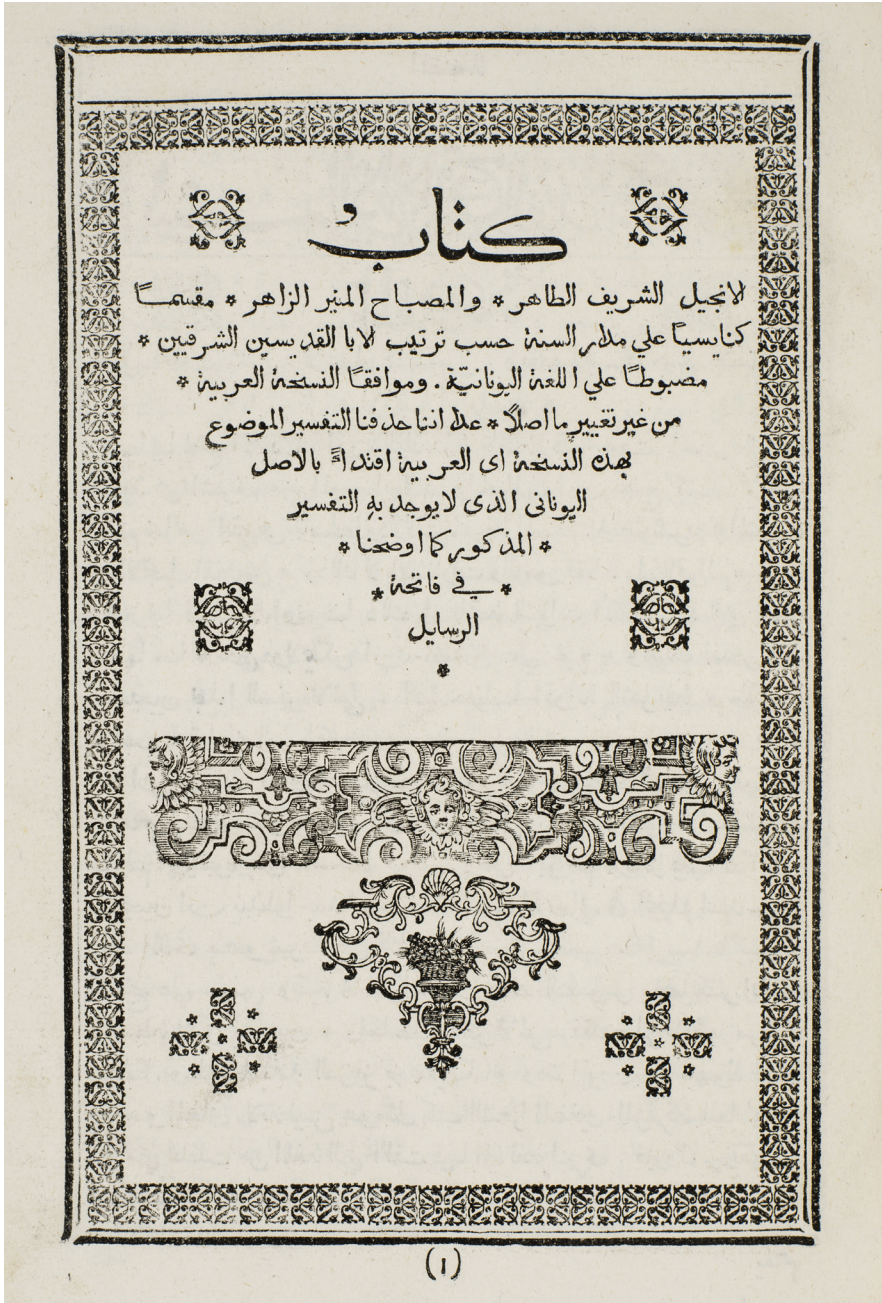 كتاب
الانجيل الشريف الطاهر * والمصباح المنير الزاهر * مقسمـــاً
كنايسياً علي مدار السنة حسب ترتيب الابا القديسين الشرقيين *
مضبوطاً علي اللغة اليونانيّة . وموافقاً النسخة العربية *
من غير تغيير ما اصلاً * علا اننا حذفنا التفسير الموضوع
بهذه النسخة اى العربية اقتداءً بالاصل
اليونانى الذى لا يوجد بهِ التفسير
* المذكور كما اوضحنا *
* في فاتحة *
الرسايل
*
(١)